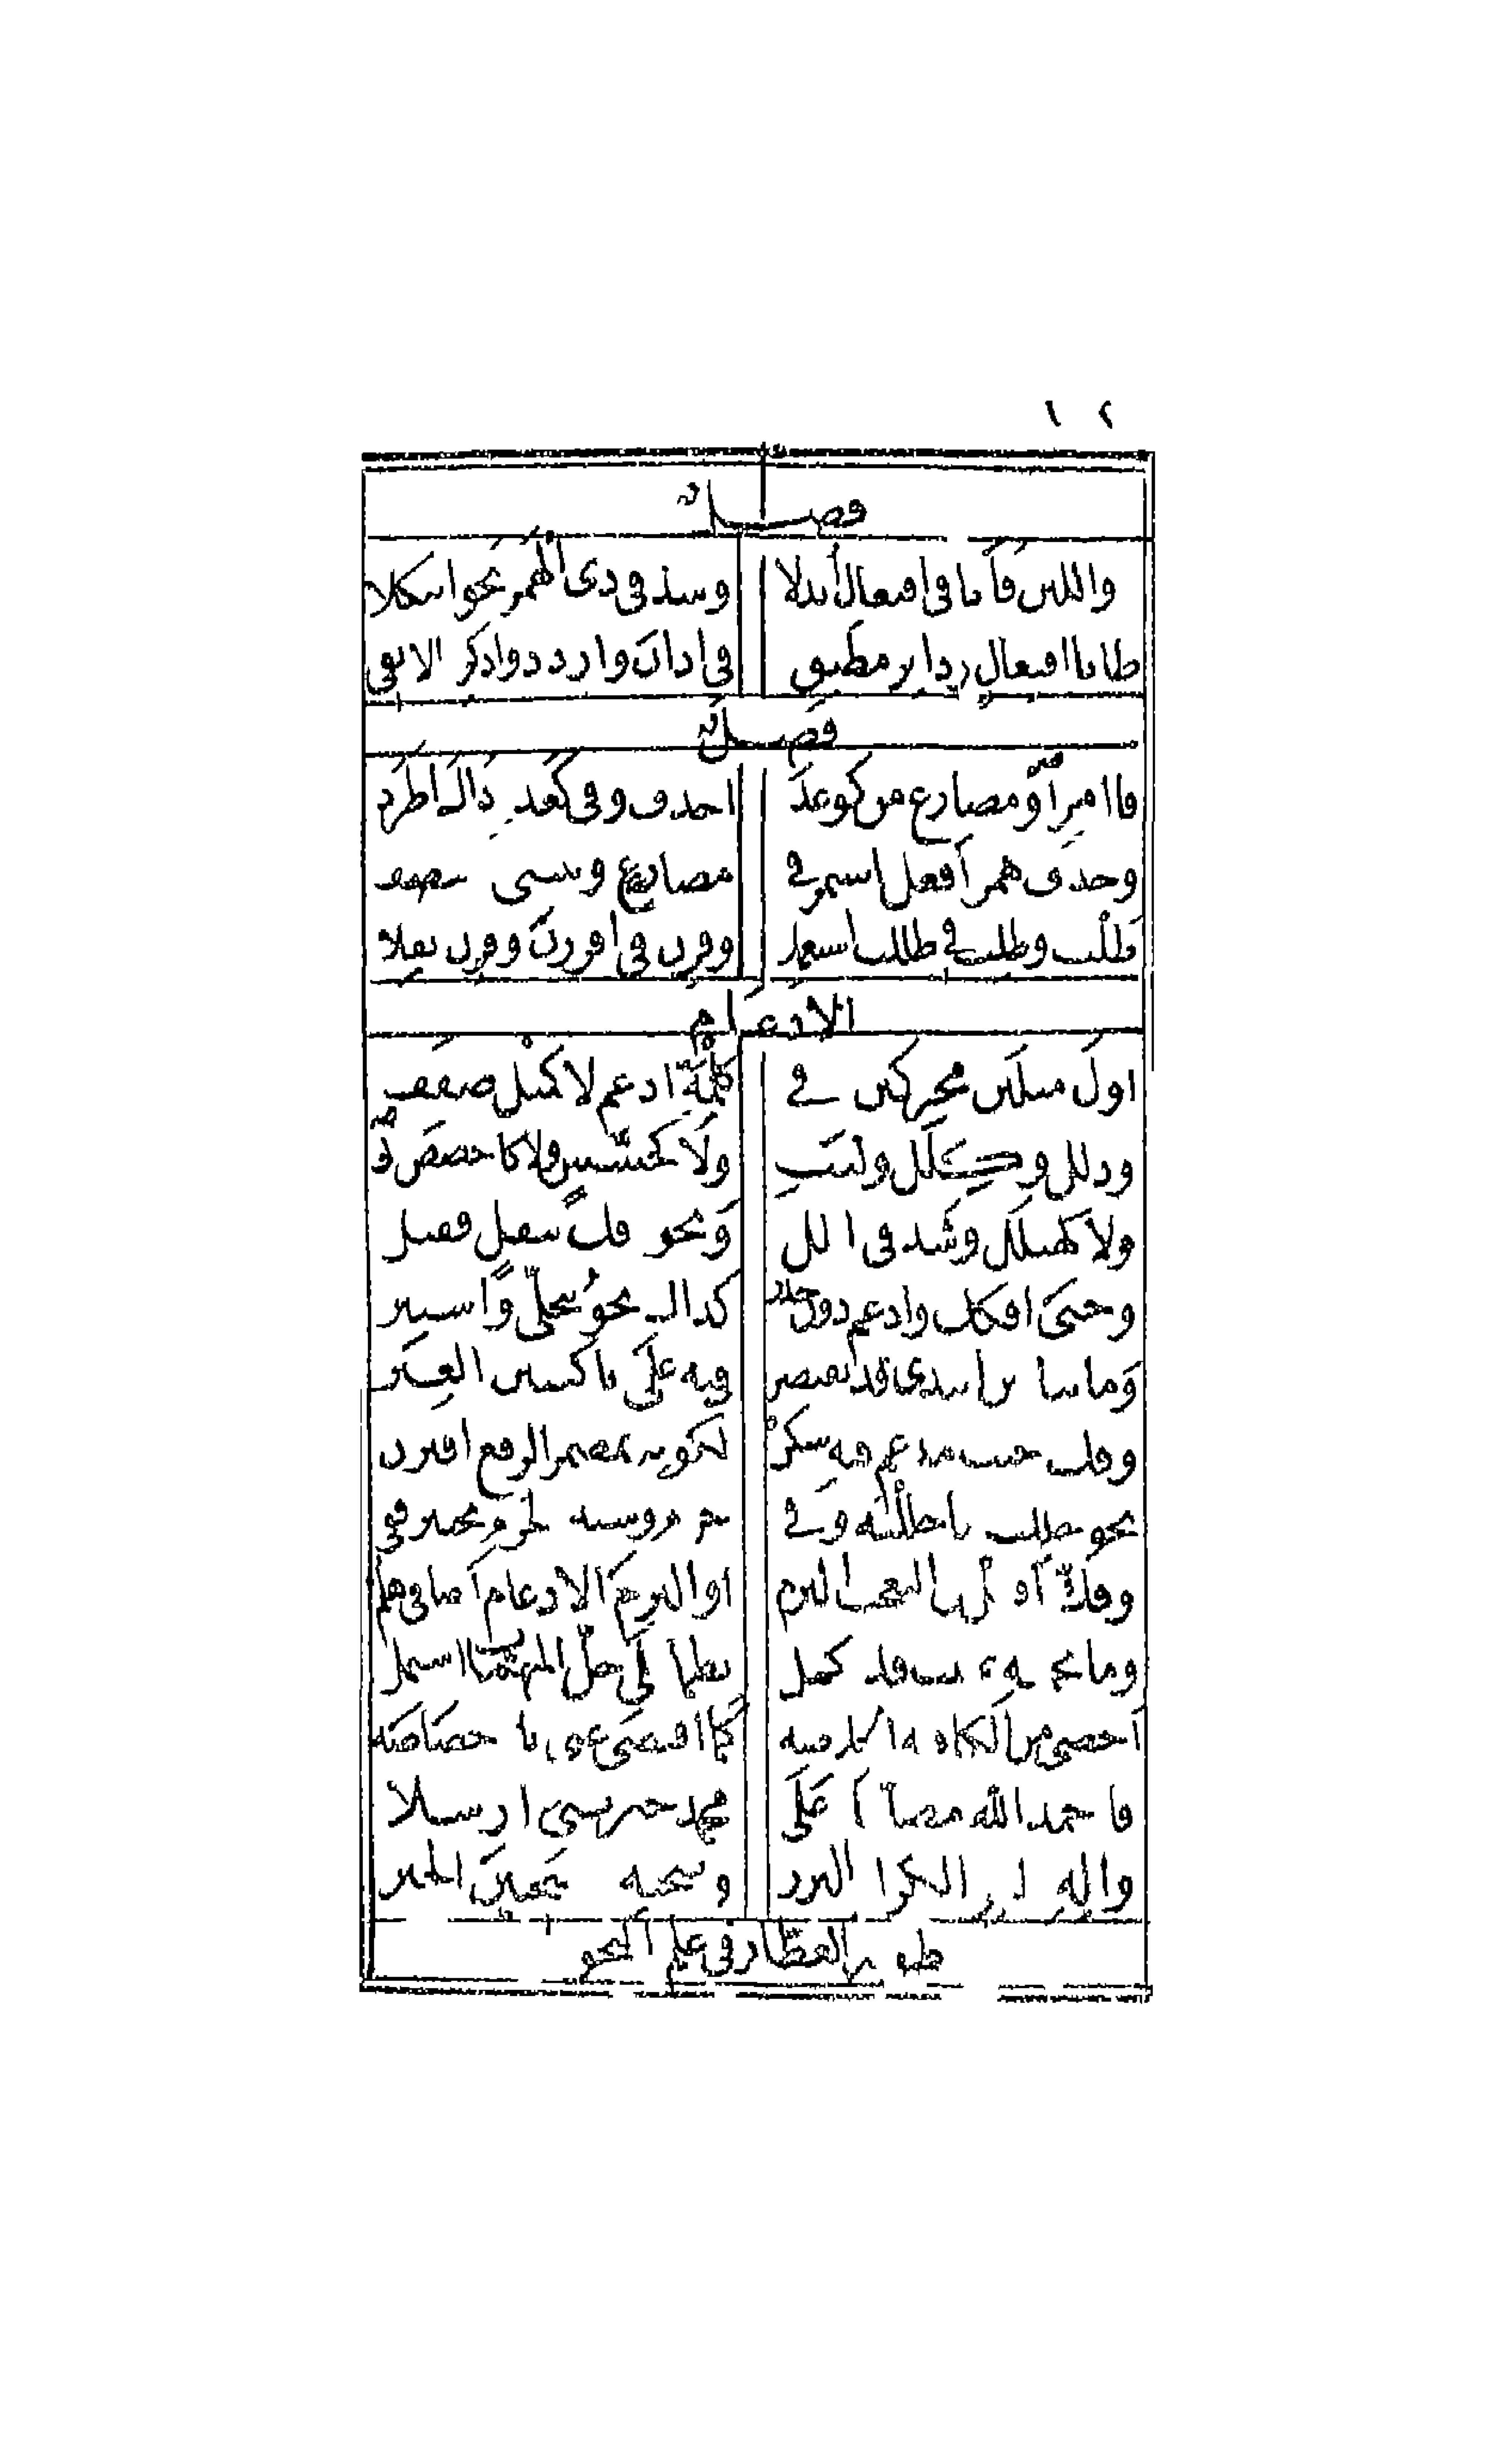 ١ ٢
فصل
واللين فا تا في افتعال أبدلا وشذ في ذي الهمز نحو ائتكلا
طا تا افتعال رد إثر مطبق في ادان وازدد وادكر دالا بقي
فصل
فا امر أو مضارع من كوعد احذف وفي كعدة ذاك اطرد
وحذف همز أفعل استمر في مضارع وبنيتي متصف
ظلت وظلت في ظللت استعملا وقرن في اقررن وقرن نقلا
الادغام
اول مثلين محركين في كلمة ادغم لا كمثل صفف
وذلل وكلل ولبب ولا كجسس ولا كاخصص
ولا كهيلل وشذ في الل ونحوه فك بنقل فقبل
وحيي افكك وادغم دون حذر كذاك نحو تتجلى واستتر
وما بتاءين ابتدي قد يقتصر فيه على تا كتبين العبر
وفك حيث مدغم فيه سكن لكونه بمضمر الرفع اقترن
نحو حللت ما حللته وفي جزم وشبه الجزم تخيير قفي
وفك أفعل في التعجب التزم والتزم الادغام أيضا في هلم
وما بجمعه عنيت قد كمل نظما على جل المهمات اشتمل
أحصى من الكافية الخلاصه كما اقتضى غنى بلا خصاصه
فاحمد الله مصليا على محمد خير نبي ارسلا
واله الغر الكرام البرره وصحبه المنتخبين الخيره
العطار في علم النحو